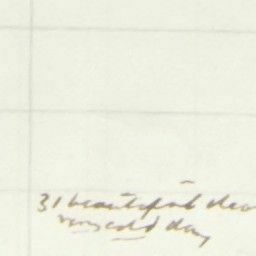 31 beautiful clear
very cold day